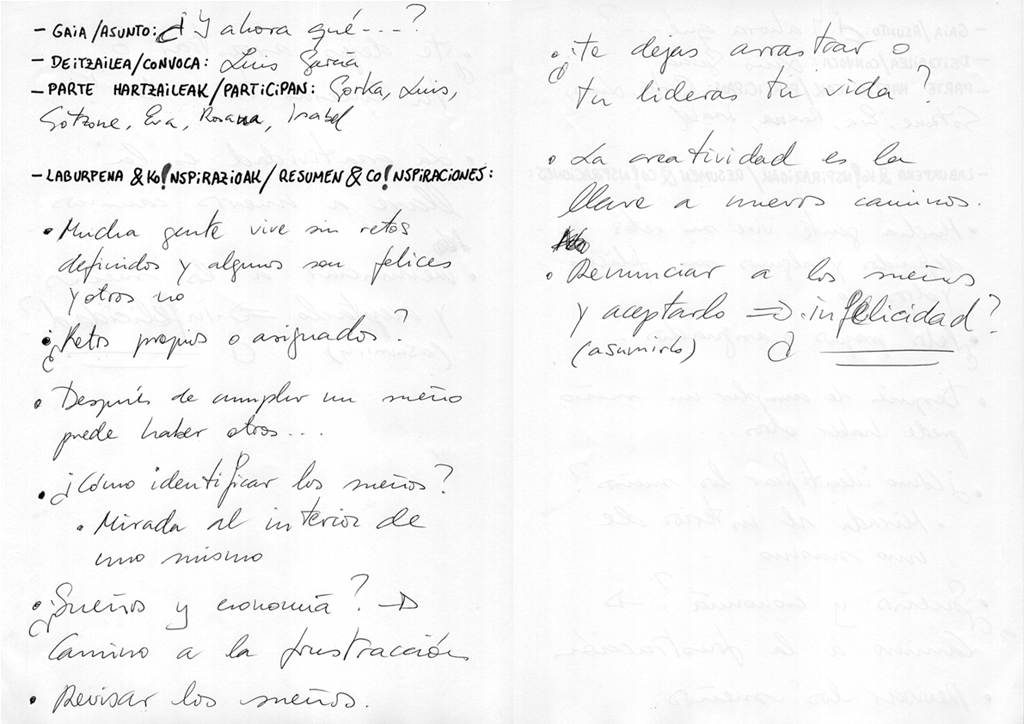 - GAIA/ASUNTO: ¿Y ahora qué----?
- DEITZAILEA/CONVOCA: Luis
- PARTE HARTZAILEAK/PARTICIPAN: Gorka, Luis,
Gotzone, Eva, Rosana, Isabel
- LABURPENA & KO!NSPIRAZIOAK/RESUMEN & CO!NSPIRACIONES:
• Mucha gente vive sin retos
definidos y algunos son felices
y otros no
• ¿Retos propios o asignados?
• Después de cumplir un sueño
puede haber otros...
• ¿Cómo identificar los sueños?
• Mirada al interior de
uno mismo
• ¿Sueños y economía? →
Camino a la frustracción
• Revisar los sueños.
• ¿te dejas arrastrar o
tu lideras tu vida?
• La creatividad es la
llave a nuevos caminos.
• Renunciar a los sueños
y aceptarlo ⇒ ¿infelicidad?
(asumirlo)